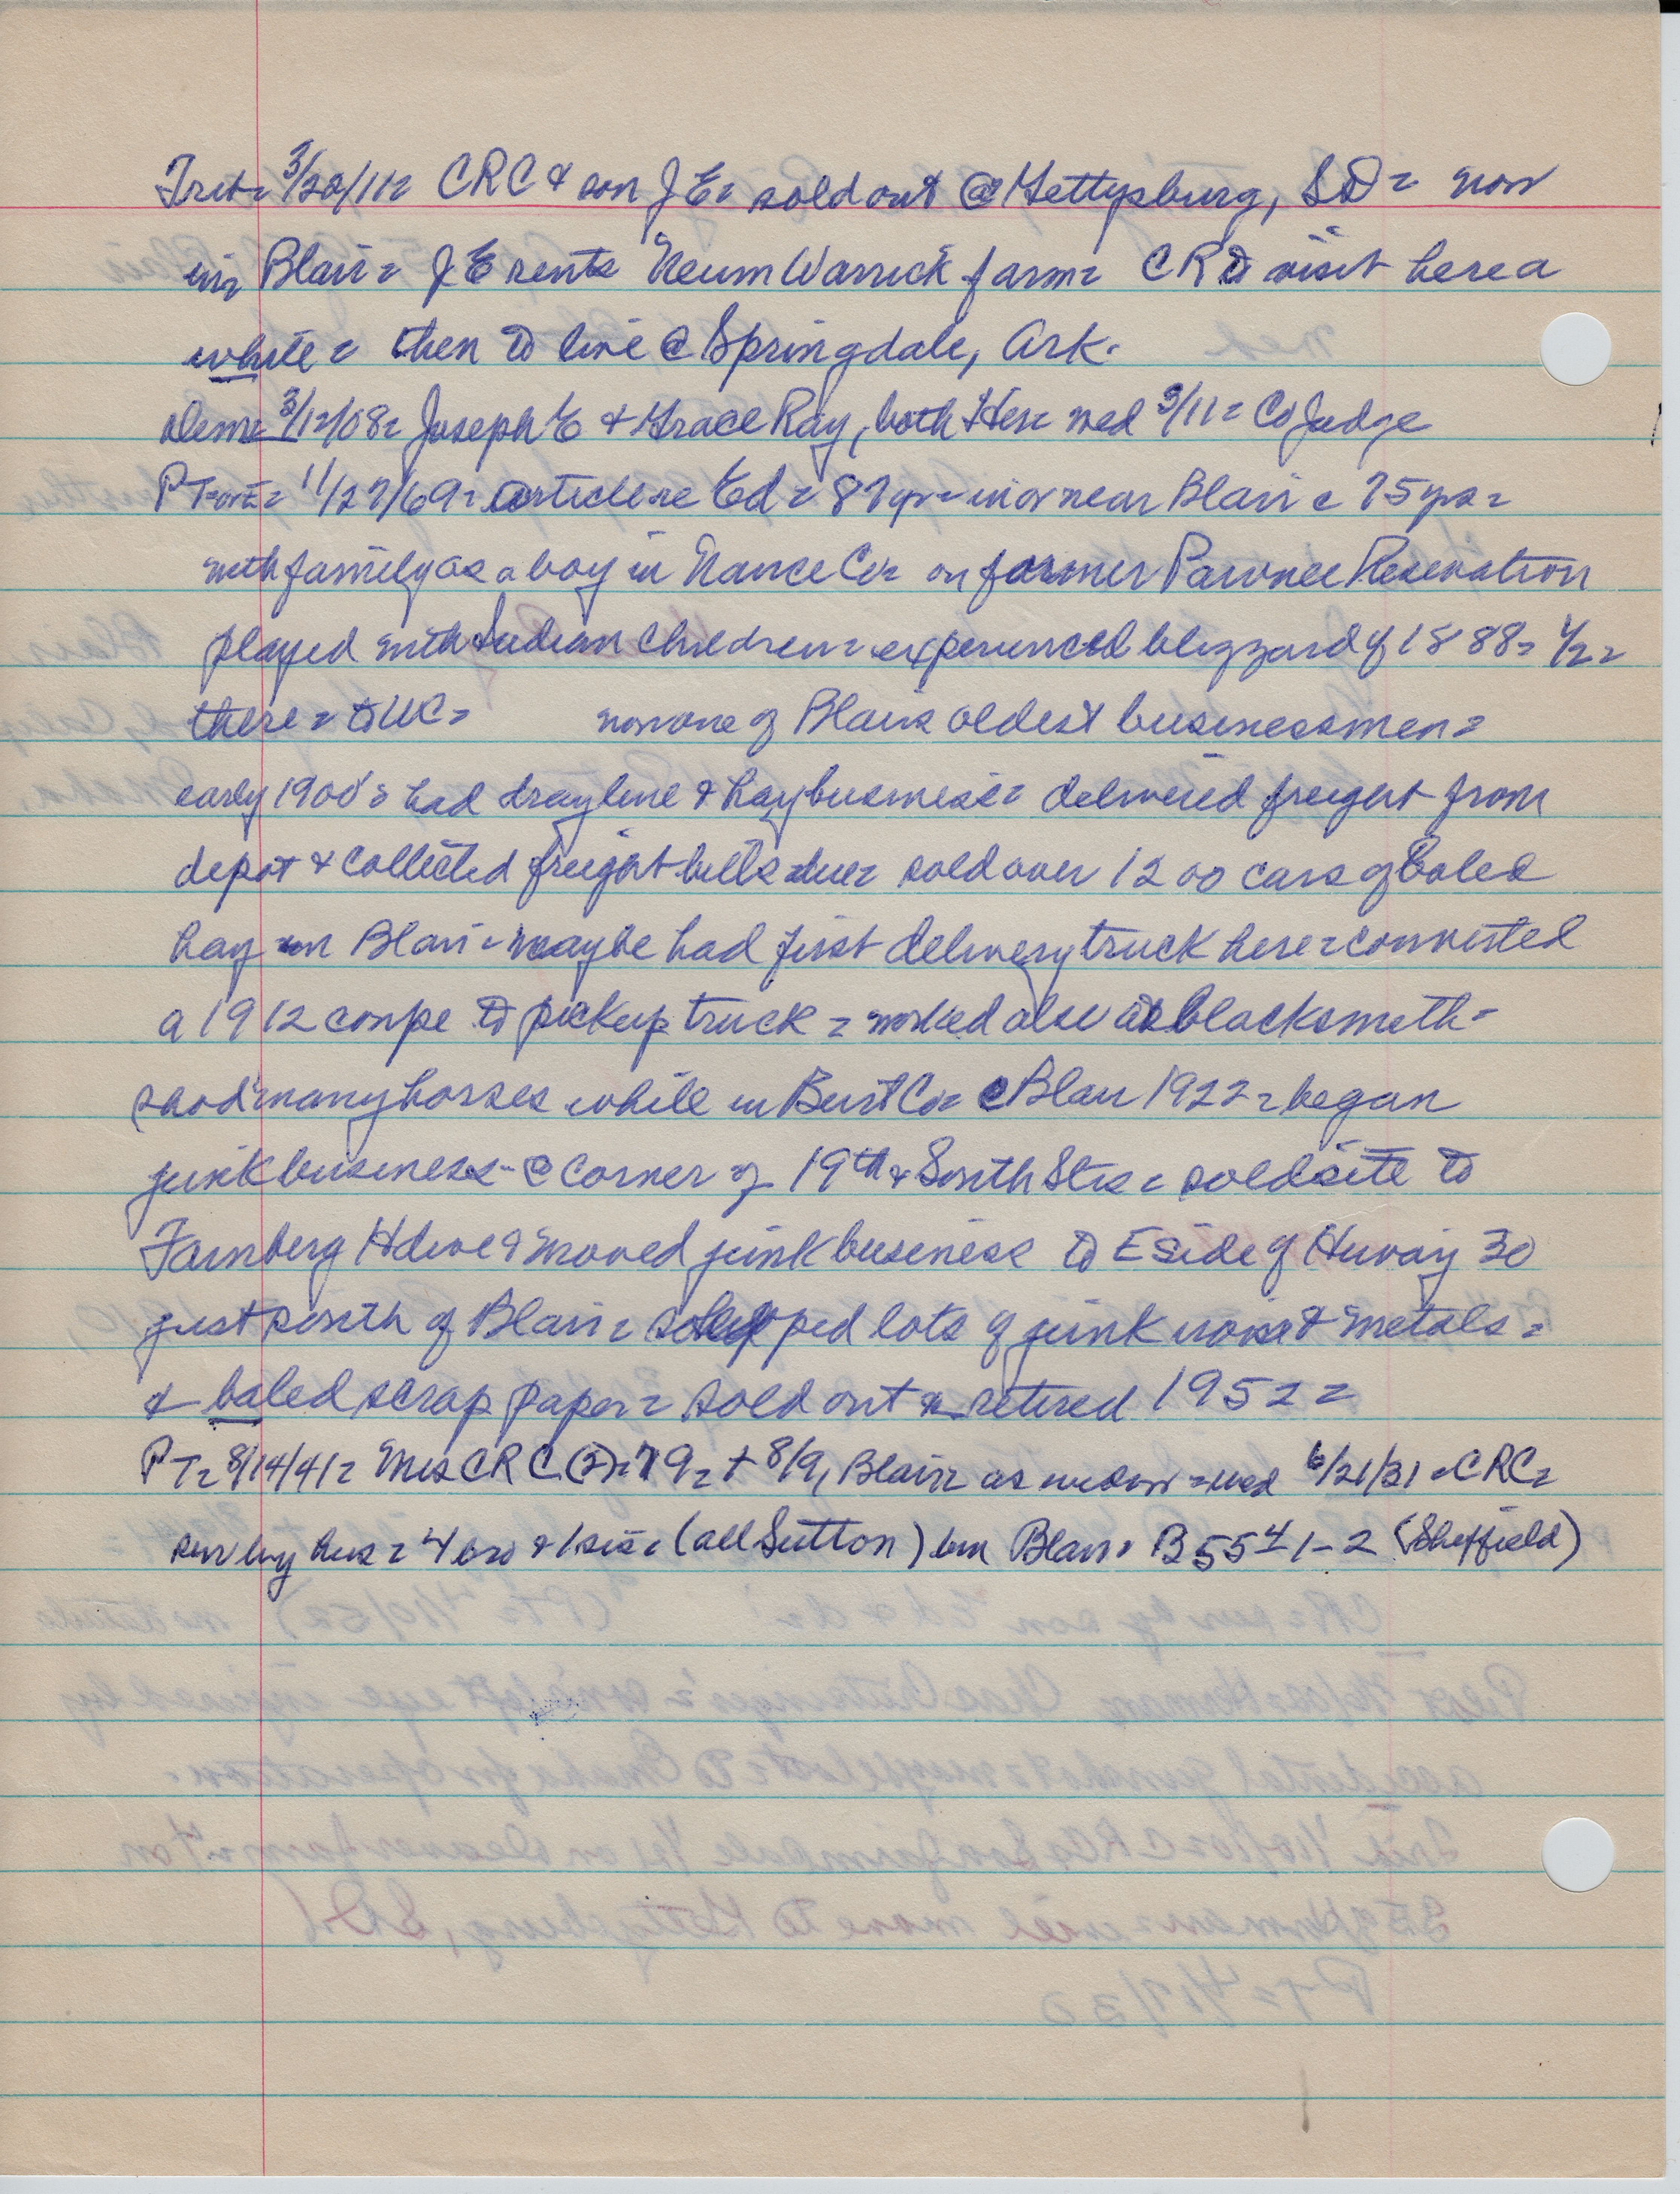 Trib= 3/20/11= CRC & son JE= sold out @ Gettysburg, SD= now
in Blair= JE rents Neum Warrick farm= CR to visit here a
while= then to live @ Springdale, Ark.
Dem= 3/12/08= Joseph E & Grace Ray, both Her= wed 3/11= Co Judge
PT= 11/27/69= article re Ed= 87 yr= in or near Blair c 75 yrs=
with family as a boy in Nance Co= on former Pawnee Reservation
played with Indian children= experienced blizzard of 1888= 1/2=
there= to WC= now one of Blairs oldest businessmen=
early 1900's had drayline & hay business= delivered freight from
depot & collected freight bills due= sold over 1200 cars of baled
hay in Blair= maybe had first delivery truck here= converted
a 1912 coupe to pickup truck= worked also as blacksmith=
shod many horses while in Burt Co= @ Blair 1922= began
junk business- @ corner of 19th & South Sts= sold site to
Farnberg Hdwe & moved junk business to E side of Huway 30
just south of Blair= shipped lots of junk iron & metals=
& baled scrap paper= sold out & retired 1952=
PT= 8/14/41= Mrs CRC (2)= 79= + 8/9, Blair= as widow= wed 6/21/31= CRC=
surv by hus= 4 bro & 1 sis= (all Sutton) bur Blair= B 55 4 1-2 (Sheffield)